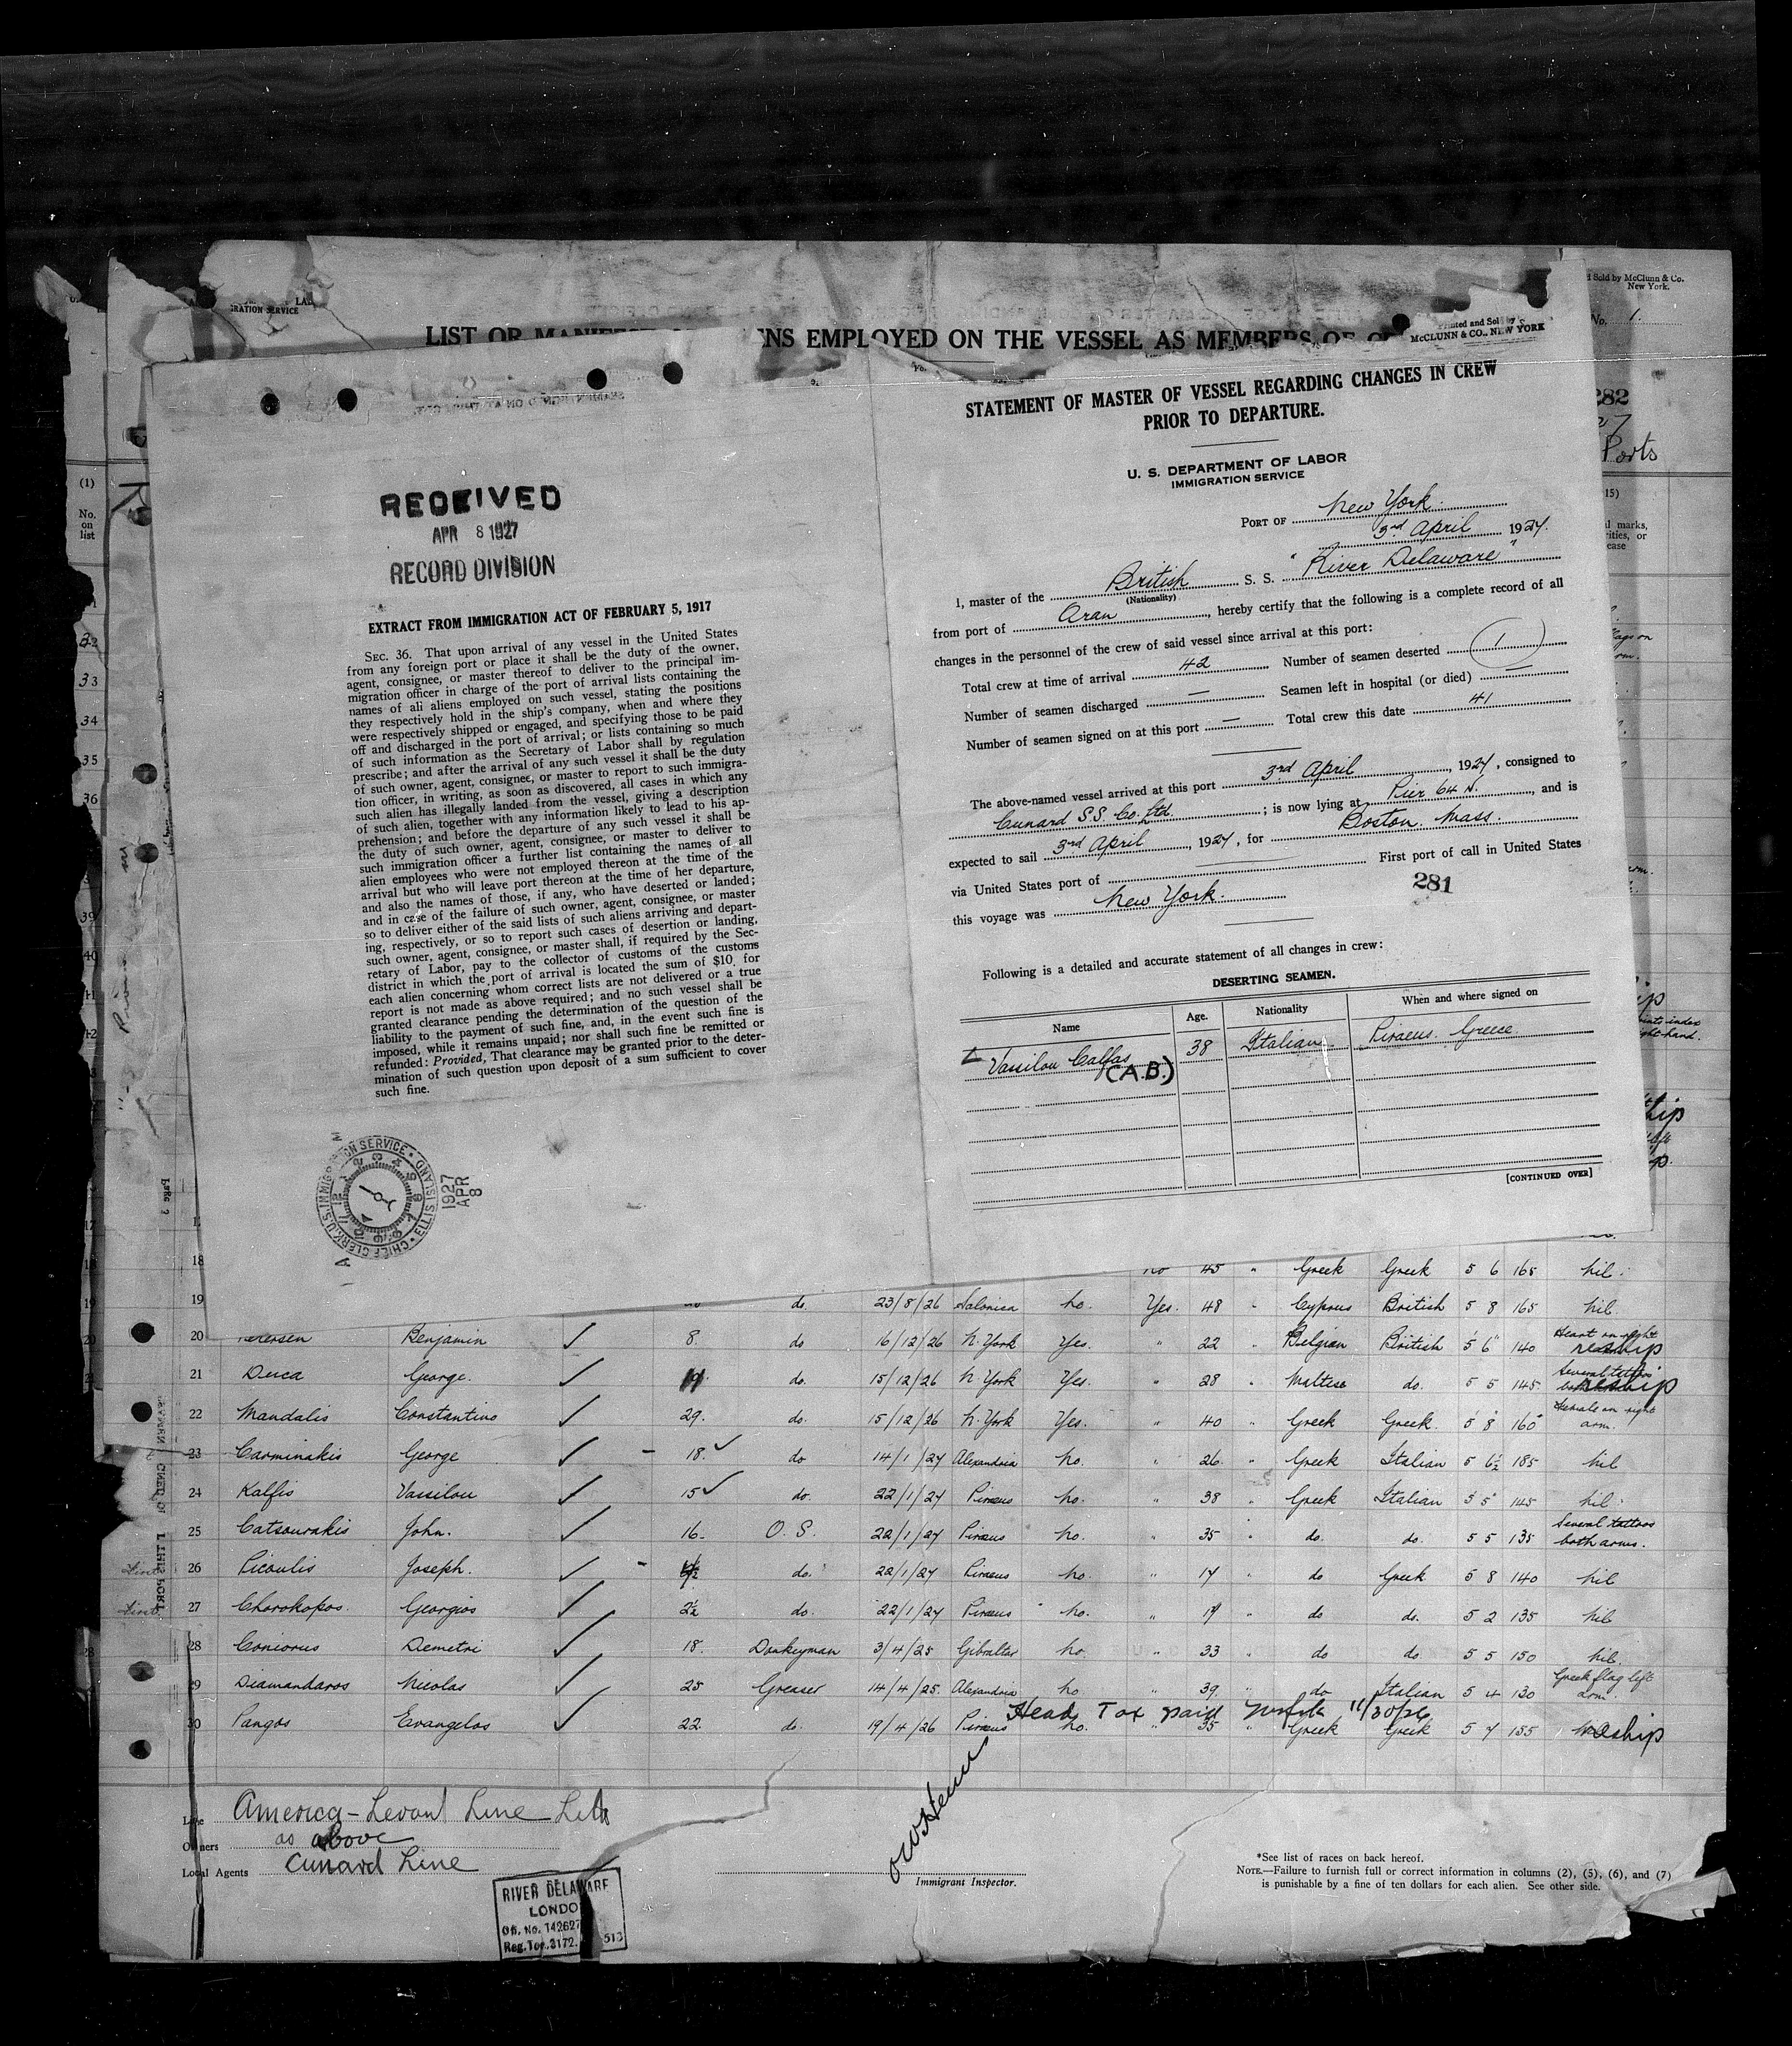 d Sold by McClunn & Co.
New York.
No. 1.
RATION SERVICE
LIST OR MANIFEST
ENS EMPLOYED ON THE VESSEL AS MEMBERS OF
282
Ports
(1)
No.
on
list
RECEIVED
APR 8 1927
RECORD DIVISION
EXTRACT FROM IMMIGRATION ACT OF FEBRUARY 5, 1917
SEC. 36. That upon arrival of any vessel in the United States
from any foreign port or place it shall be the duty of the owner,
agent, consignee, or master thereof to deliver to the principal im-
migration officer in charge of the port of arrival lists containing the
names of all aliens employed on such vessel, stating the positions
they respectively hold in the ship's company, when and where they
were respectively shipped or engaged, and specifying those to be paid
off and discharged in the port of arrival; or lists containing so much
of such information as the Secretary of Labor shall by regulation
prescribe; and after the arrival of any such vessel it shall be the duty
of such owner, agent, consignee, or master to report to such immigra-
tion officer, in writing, as soon as discovered, all cases in which any
such alien has illegally landed from the vessel, giving a description
of such alien, together with any information likely to lead to his ap-
prehension; and before the departure of any such vessel it shall be
the duty of such owner, agent, consignee, or master to deliver to
such immigration officer a further list containing the names of all
alien employees who were not employed thereon at the time of the
arrival but who will leave port thereon at the time of her departure,
and also the names of those, if any, who have deserted or landed;
and in case of the failure of such owner, agent, consignee, or master
so to deliver either of the said lists of such aliens arriving and depart-
ing, respectively, or so to report such cases of desertion or landing,
such owner, agent, consignee, or master shall, if required by the Sec-
retary of Labor, pay to the collector of customs of the customs
district in which the port of arrival is located the sum of $10 for
each alien concerning whom correct lists are not delivered or a true
report is not made as above required; and no such vessel shall be
granted clearance pending the determination of the question of the
liability to the payment of such fine, and, in the event such fine is
imposed, while it remains unpaid; nor shall such fine be remitted or
refunded: Provided, That clearance may be granted prior to the deter-
mination of such question upon deposit of a sum sufficient to cover
such fine.
CHIEF CLERK U.S. IMMIGRATION SERVICE • ELLIS ISLAND
1927
APR
8
Printed and Sold by
McCLUNN & CO., NEW YORK
STATEMENT OF MASTER OF VESSEL REGARDING CHANGES IN CREW
PRIOR TO DEPARTURE.
U. S. DEPARTMENT OF LABOR
IMMIGRATION SERVICE
PORT OF New York.
3rd April 1927.
I, master of the British S. S. "River Delaware"
(Nationality)
from port of Oran, hereby certify that the following is a complete record of all
changes in the personnel of the crew of said vessel since arrival at this port:
Total crew at time of arrival 42 Number of seamen deserted 1
Number of seamen discharged — Seamen left in hospital (or died) —
Number of seamen signed on at this port — Total crew this date 41
The above-named vessel arrived at this port 3rd April, 1927, consigned to
Cunard S.S. Co. Ltd.; is now lying at Pier 64 N., and is
expected to sail 3rd April, 1927, for Boston. Mass.
via United States port of First port of call in United States
this voyage was New York.
281
Following is a detailed and accurate statement of all changes in crew:
DESERTING SEAMEN.
Name Age. Nationality When and where signed on
Vassilou Calfas (A.B.) 38 Italian Piraeus. Greece
[CONTINUED OVER]
18 no 45 " Greek Greek 5 6 165 nil.
19 do. 23/8/26 Salonica no. Yes. 48 " Cyprus British 5 8 165 nil.
20 Benjamin ✓ 8. do 16/12/26 N. York Yes. " 22 " Belgian British 5 6 140 Heart on right reship
21 Duca George. ✓ 19. do. 15/12/26 N York Yes. " 28 " Maltese do. 5 5 145 Several tattoos reship
22 Mandalis Constantino ✓ 29. do. 15/12/26 N. York Yes. " 40 " Greek Greek 5 8 160 Female on right arm.
23 Carminakis George ✓ 18. ✓ do 14/1/27 Alexandria no. " 26 " Greek Italian 5 6½ 185 nil
24 Kalfis Vassilou ✓ 15 ✓ do. 22/1/27 Piraeus no. " 38 " Greek Italian 5 5 145 nil.
25 Catsourakis John. ✓ 16. O. S. 22/1/27 Piraeus no. " 35 " do. do. 5 5 135 Several tattoos both arms.
26 Picoulis Joseph. ✓ do. 22/1/27 Piraeus no. " 17 " do Greek 5 8 140 nil
27 Chorokopos. Georgios ✓ 2½ do. 22/1/27 Piraeus no. " 19 " do do. 5 2 135 nil
28 Coniorus Demetri ✓ 18. Donkeyman 3/4/25 Gibraltar no. " 33 " do do 5 5 150 nil.
29 Diamandaros Nicolas ✓ 25 Greaser 14/4/25. Alexandria no " 39. " do Italian 5 4 130 Greek flag left arm.
Head Tax paid Norfolk 11/30/26
30 Pangos Evangelos ✓ 22 do. 19/4/26 Piraeus no. " 35 " Greek Greek 5 7 155 reship
Line America-Levant Line Ltd
Owners as above
Local Agents Cunard Line
RIVER DELAWARE
LONDO
Off. No. 142627
Reg. Ton. 3172. 513
Immigrant Inspector.
*See list of races on back hereof.
NOTE.—Failure to furnish full or correct information in columns (2), (5), (6), and (7)
is punishable by a fine of ten dollars for each alien. See other side.